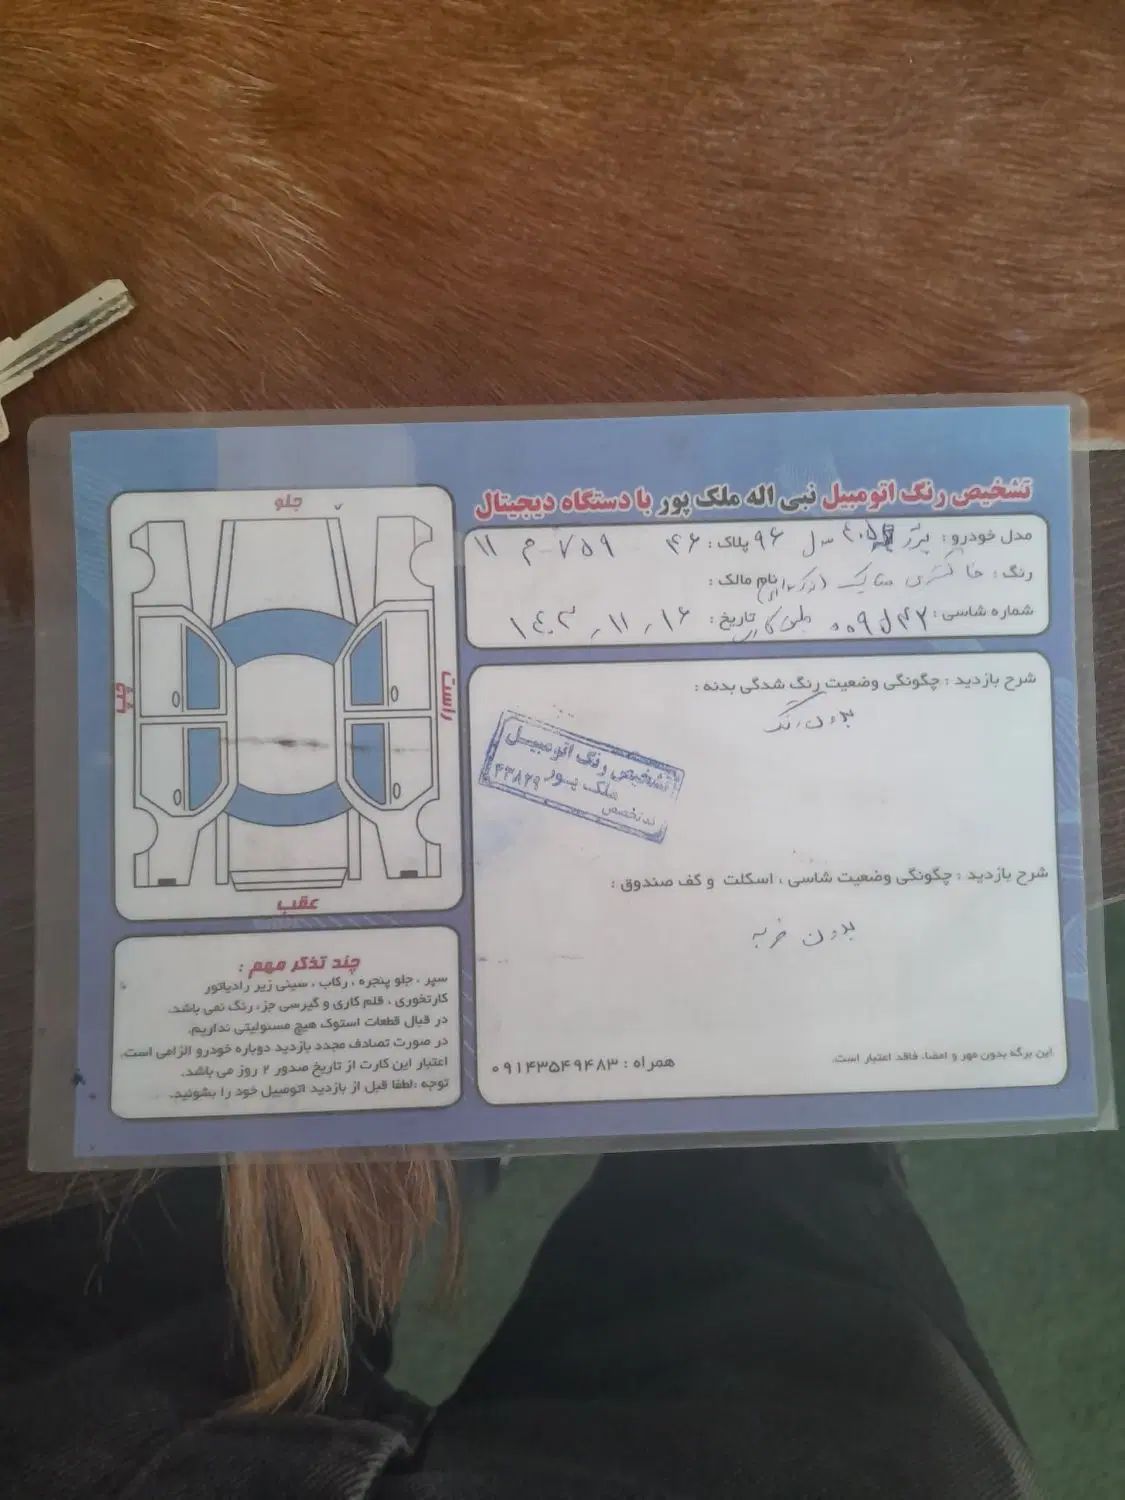 تشخیص رنگ اتومبیل نبی اله ملک پور با دستگاه دیجیتال
مدل خودرو : پژو ۴۰۵ مدل ۹۶ پلاک : ۴۶ ۷۵۹ م ۱۱
رنگ : خاکستری متالیک نام مالک :
شماره شاسی : تاریخ : ۱۴۰۳/۱۱/۱۶
شرح بازدید : چگونگی وضعیت رنگ شدگی بدنه :
بدون رنگ
تشخیص رنگ اتومبیـل
ملک پـور ۴۳۸۲۹
شرح بازدید : چگونگی وضعیت شاسی ، اسکلت و کف صندوق :
بدون ضربه
این برگه بدون مهر و امضا، فاقد اعتبار است.
همراه : ۰۹۱۴۳۵۴۹۴۸۳
جلو
راست
چپ
عقب
چند تذکر مهم :
سپر ، جلو پنجره ، رکاب ، سینی زیر رادیاتور
کارتخوری ، قلم کاری و گیرسی جزء رنگ نمی باشد.
در قبال قطعات استوک هیچ مسئولیتی نداریم.
در صورت تصادف مجدد بازدید دوباره خودرو الزامی است.
اعتبار این کارت از تاریخ صدور ۲ روز می باشد.
توجه :لطفا قبل از بازدید اتومبیل خود را بشوئید.